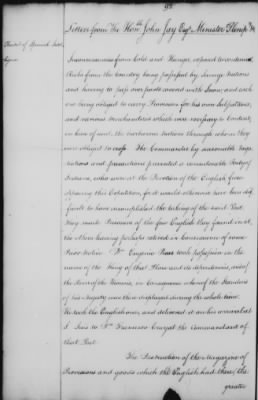 93
Letters from The Hon.ble John Jay Esq.r Minister Plenip.y &c
Inconveniences from Cold and Hunger, exposed to ren
Risks from the Country being possessed by Savage Nations
and having to pass over parts covered with Snow; and each
one being obliged to carry Provision for his own Subsistence,
and various Merchandises which was necessary to content,
in Case of need, the barbarous Nations through whom they
were obliged to cross. The Commander by seasonable nego-
tiations and precautions prevented a considerable Body of
Indians, who were at the Devotion of the English from
opposing this Expedition, for it would otherwise have been dif-
ficult to have accomplished the taking of the said Post.
They made Prisoners of the few English they found in it,
the others having perhaps retired in Consequence of some
Prior Notice. Don Eugenio took possession in the
name of the King of that Place and its dependencies, and of
the River of the in Consequence whereof the Standard
of his Majesty was there displayed during the whole time.
He took the English one, and delivered it on his arrival at
S.t Luis to Don Francisco Cruzat the Commandant of
that Post.
The Destruction of the Magazine of
Provisions and goods which the English had there, the
greater